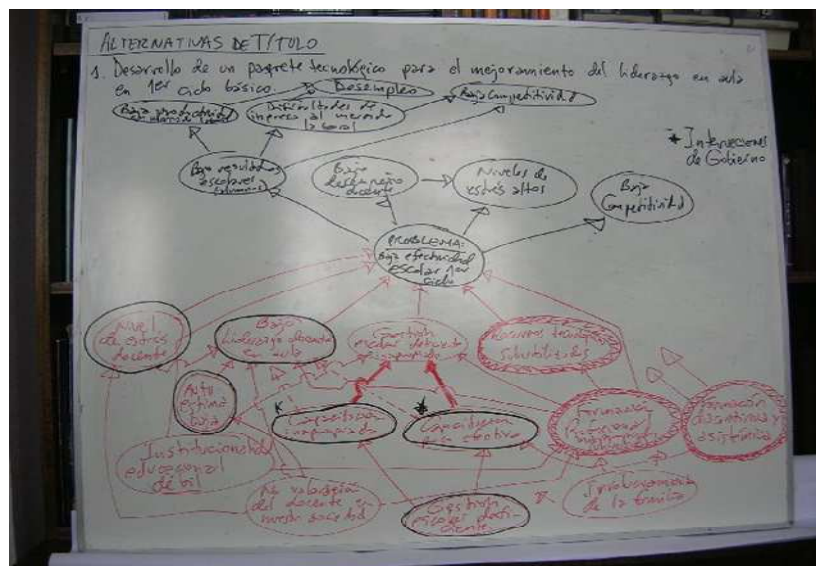 ALTERNATIVAS DE TÍTULO
1. Desarrollo de un paquete tecnológico para el mejoramiento del liderazgo en aula
en 1er ciclo básico.
Desempleo
Baja Competitividad
Baja productividad
Dificultades de
ingreso al mercado
laboral
* Intervenciones
de Gobierno
Bajo resultados
escolares
Bajo
desempeño
docente
Niveles de
estrés altos
Baja
Competitividad
PROBLEMA:
Baja efectividad
escolar 1er
ciclo
Nivel
de estrés
docente
Bajo
liderazgo docente
en aula
Gestión
Recursos tecnológicos
subutilizados
Auto
estima
baja
Capacitación
inapropiada
Capacitación
poco efectiva
Formación
Formación
y
asistémica
Institucionalidad
educacional
débil
No valoración
del docente en
nuestra sociedad
Gestión
escolar defi-
ciente
Involucramiento
de la familia